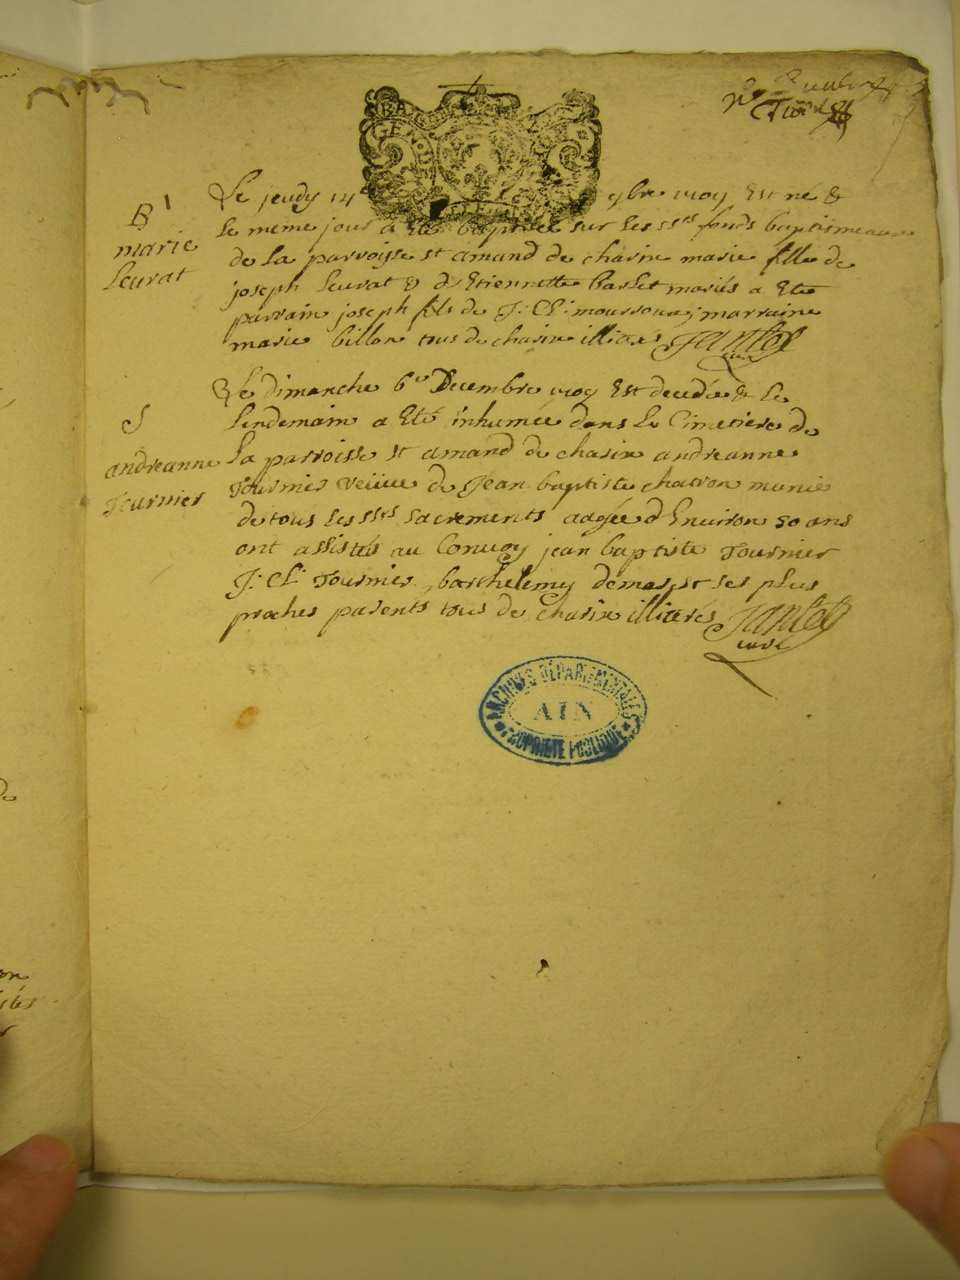 B
marie
Leurat
Le jeudy 14e 9bre 1709 Est né &
le meme jour a Eté baptisée sur les sts fonds baptismeaux
de la parroisse st amand de chasin marie fille de
joseph Leurat & d'Etiennette barlet mariés a Eté
parrain joseph fils de J: Cl: marraine
marie billon tous de chasin illitérés
curé
S
andreanne
Tournier
Le dimanche 6e Decembre Est decedée & le
lendemain a Eté inhumée dans le Cimetiere de
la parroisse st amand de chasin andreanne
Tournier veüve de Jean baptiste chatron munie
de tous les sts sacrements adgée d'Environ 50 ans
ont assistés au Convoy jean baptiste Tournier
J: Cl: Tournier, barthelemy & ses plus
proches parents tous de chasin illiterés
curé
ARCHIVES DÉPARTEMENTALES
AIN
PROPRIÉTÉ PUBLIQUE